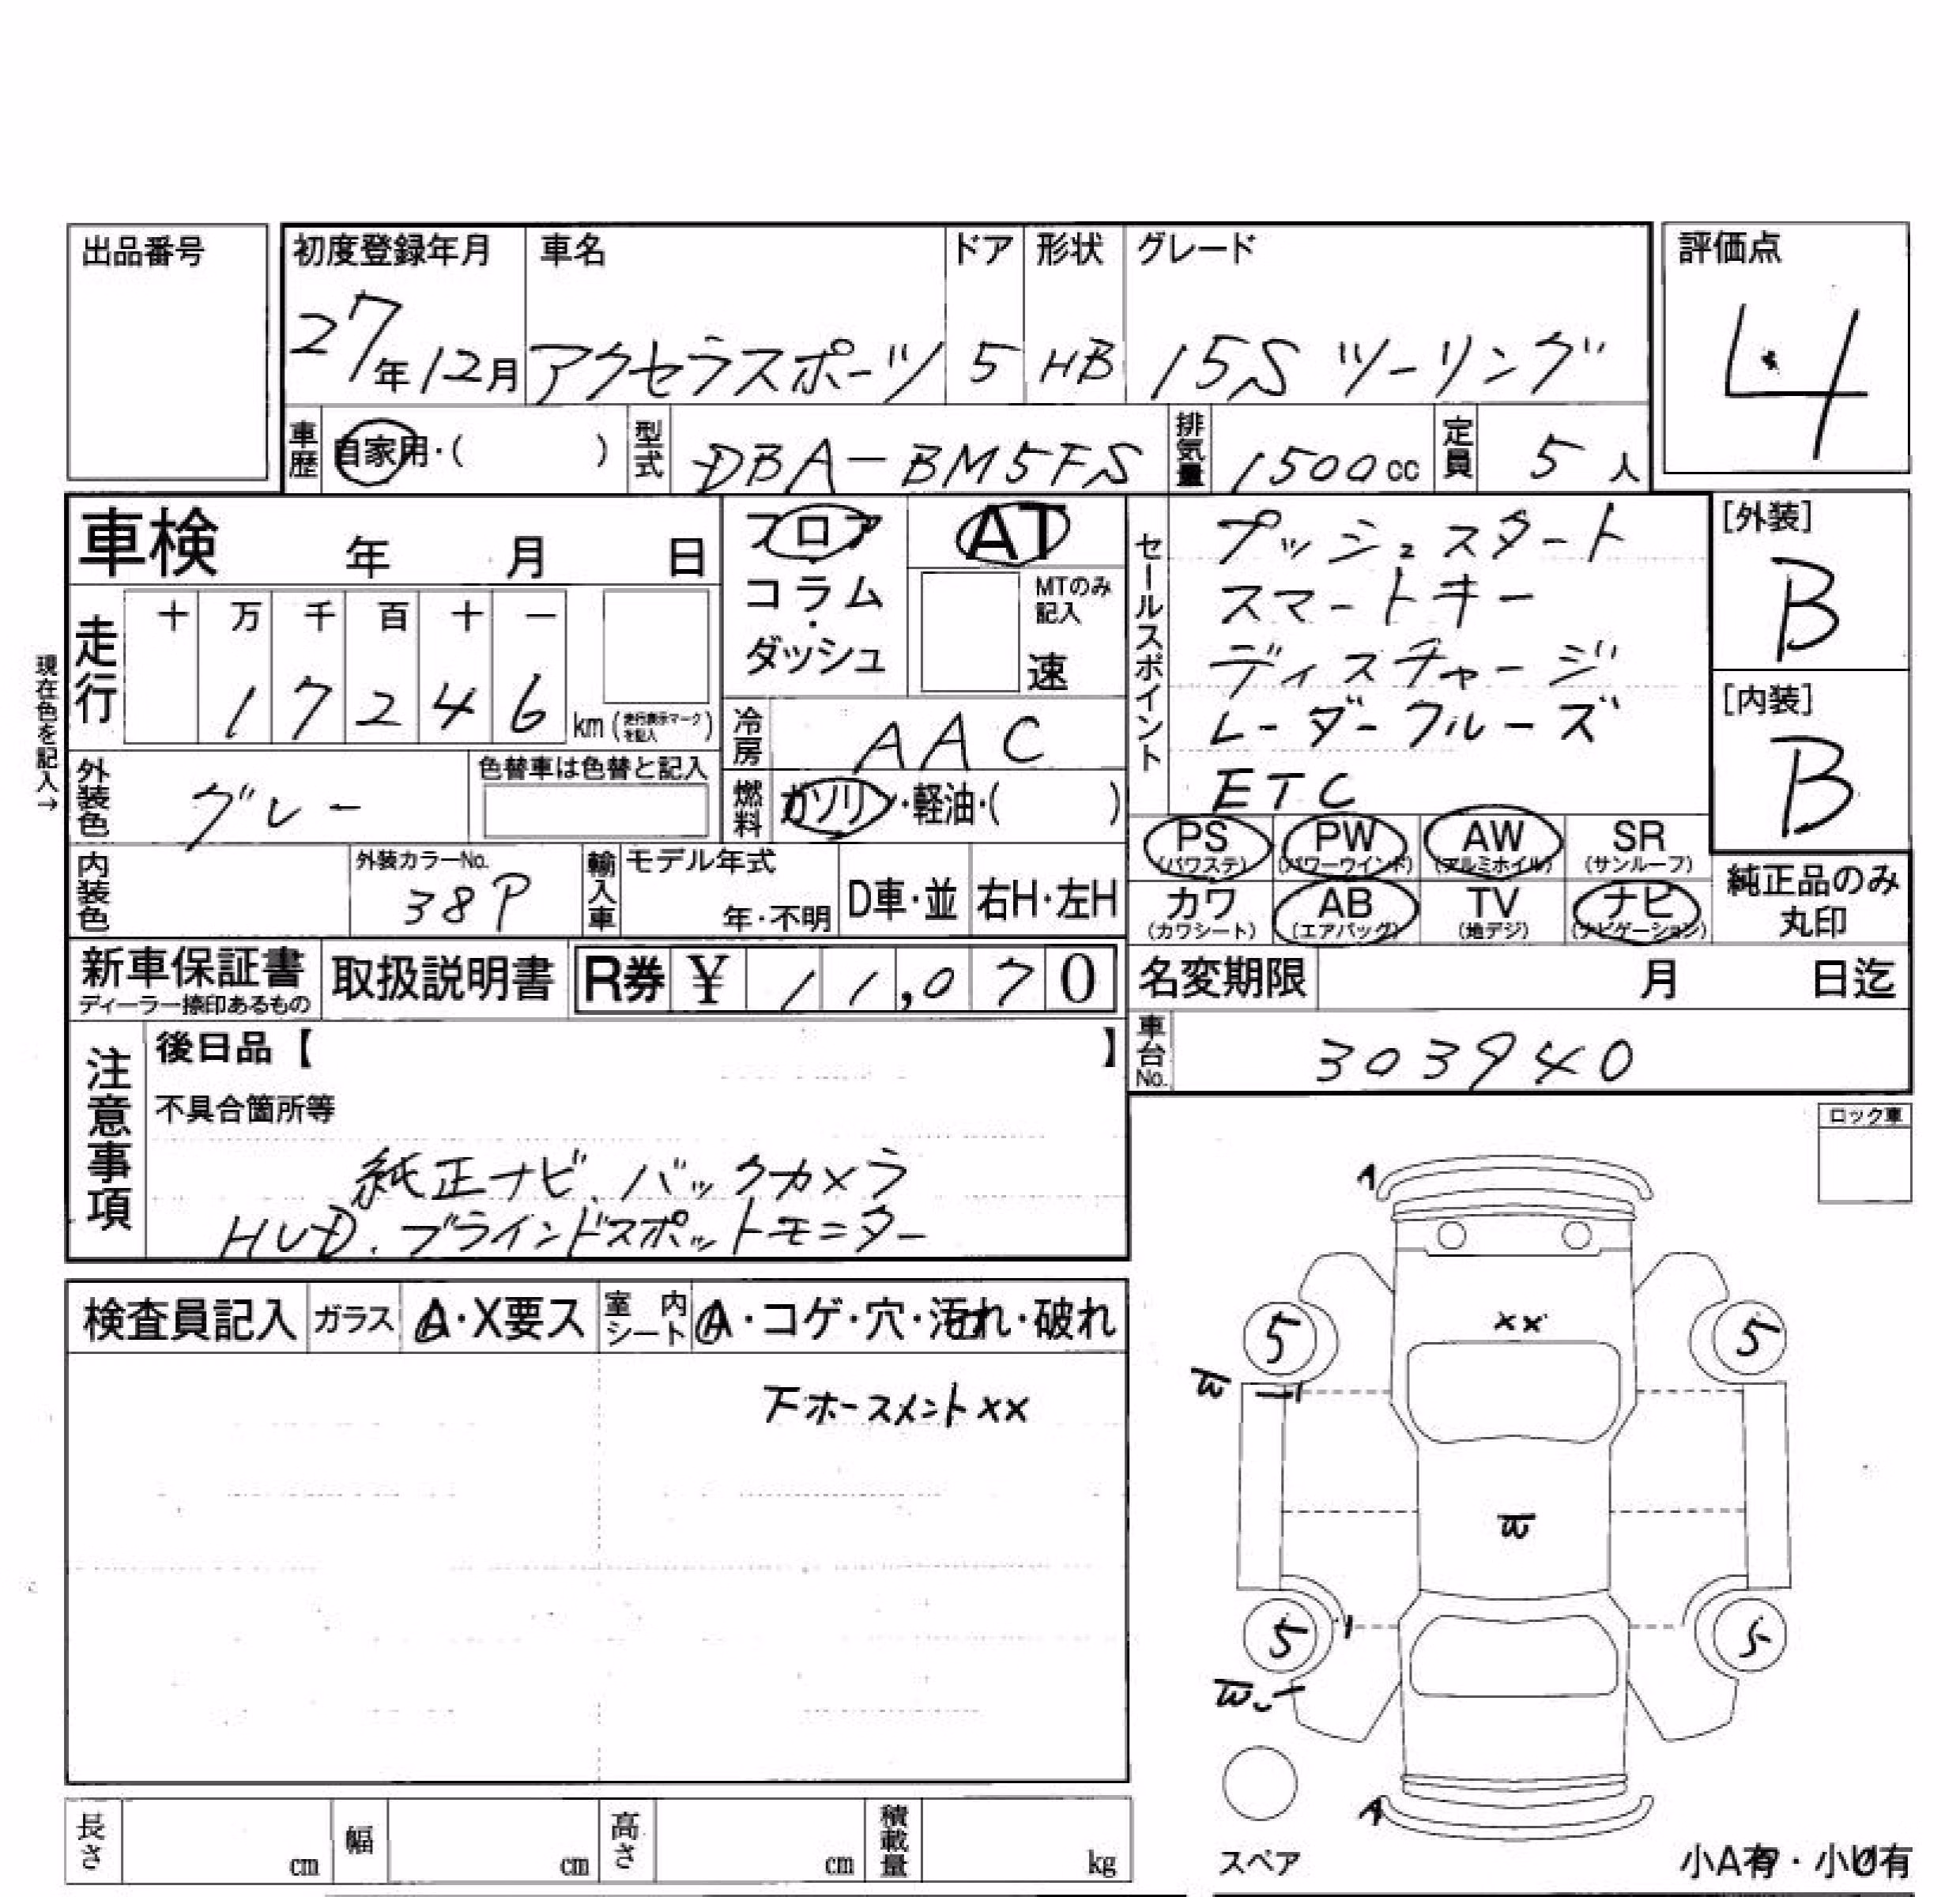 出品番号
初度登録年月 車名 ドア 形状 グレード 評価点
27年12月 アクセラスポーツ 5 HB 15S ツーリング 4
車歴 自家用・( ) 型式 DBA-BM5FS 排気量 1500cc 定員 5人
車検 年 月 日
フロア・コラム・ダッシュ
AT
MTのみ記入
速
走行 十 万 千 百 十 一
17246 km (走行表示マークを記入)
現在色を記入→
冷房 AAC
外装色 グレー 色替車は色替と記入
燃料 ガソリン・軽油・( )
内装色 外装カラーNo. 38P 輸入車 モデル年式 年・不明 D車・並 右H・左H
セールスポイント
プッシュスタート
スマートキー
ディスチャージ
レーダークルーズ
ETC
[外装]
B
[内装]
B
PS (パワステ) PW (パワーウインド) AW (アルミホイル) SR (サンルーフ)
カワ (カワシート) AB (エアバッグ) TV (地デジ) ナビ (ナビゲーション)
純正品のみ
丸印
新車保証書 ディーラー捺印あるもの 取扱説明書 R券 ¥ 11,070
名変期限 月 日迄
車台No. 303940
注意事項
後日品【 】
不具合箇所等
純正ナビ、バックカメラ
HUD、ブラインドスポットモニター
ロック車
検査員記入 ガラス A・X要ス 室内シート A・コゲ・穴・汚れ・破れ
下ホースメント××
A
××
5 5
5 5
A
スペア
小A有・小U有
長さ cm 幅 cm 高さ cm 積載量 kg